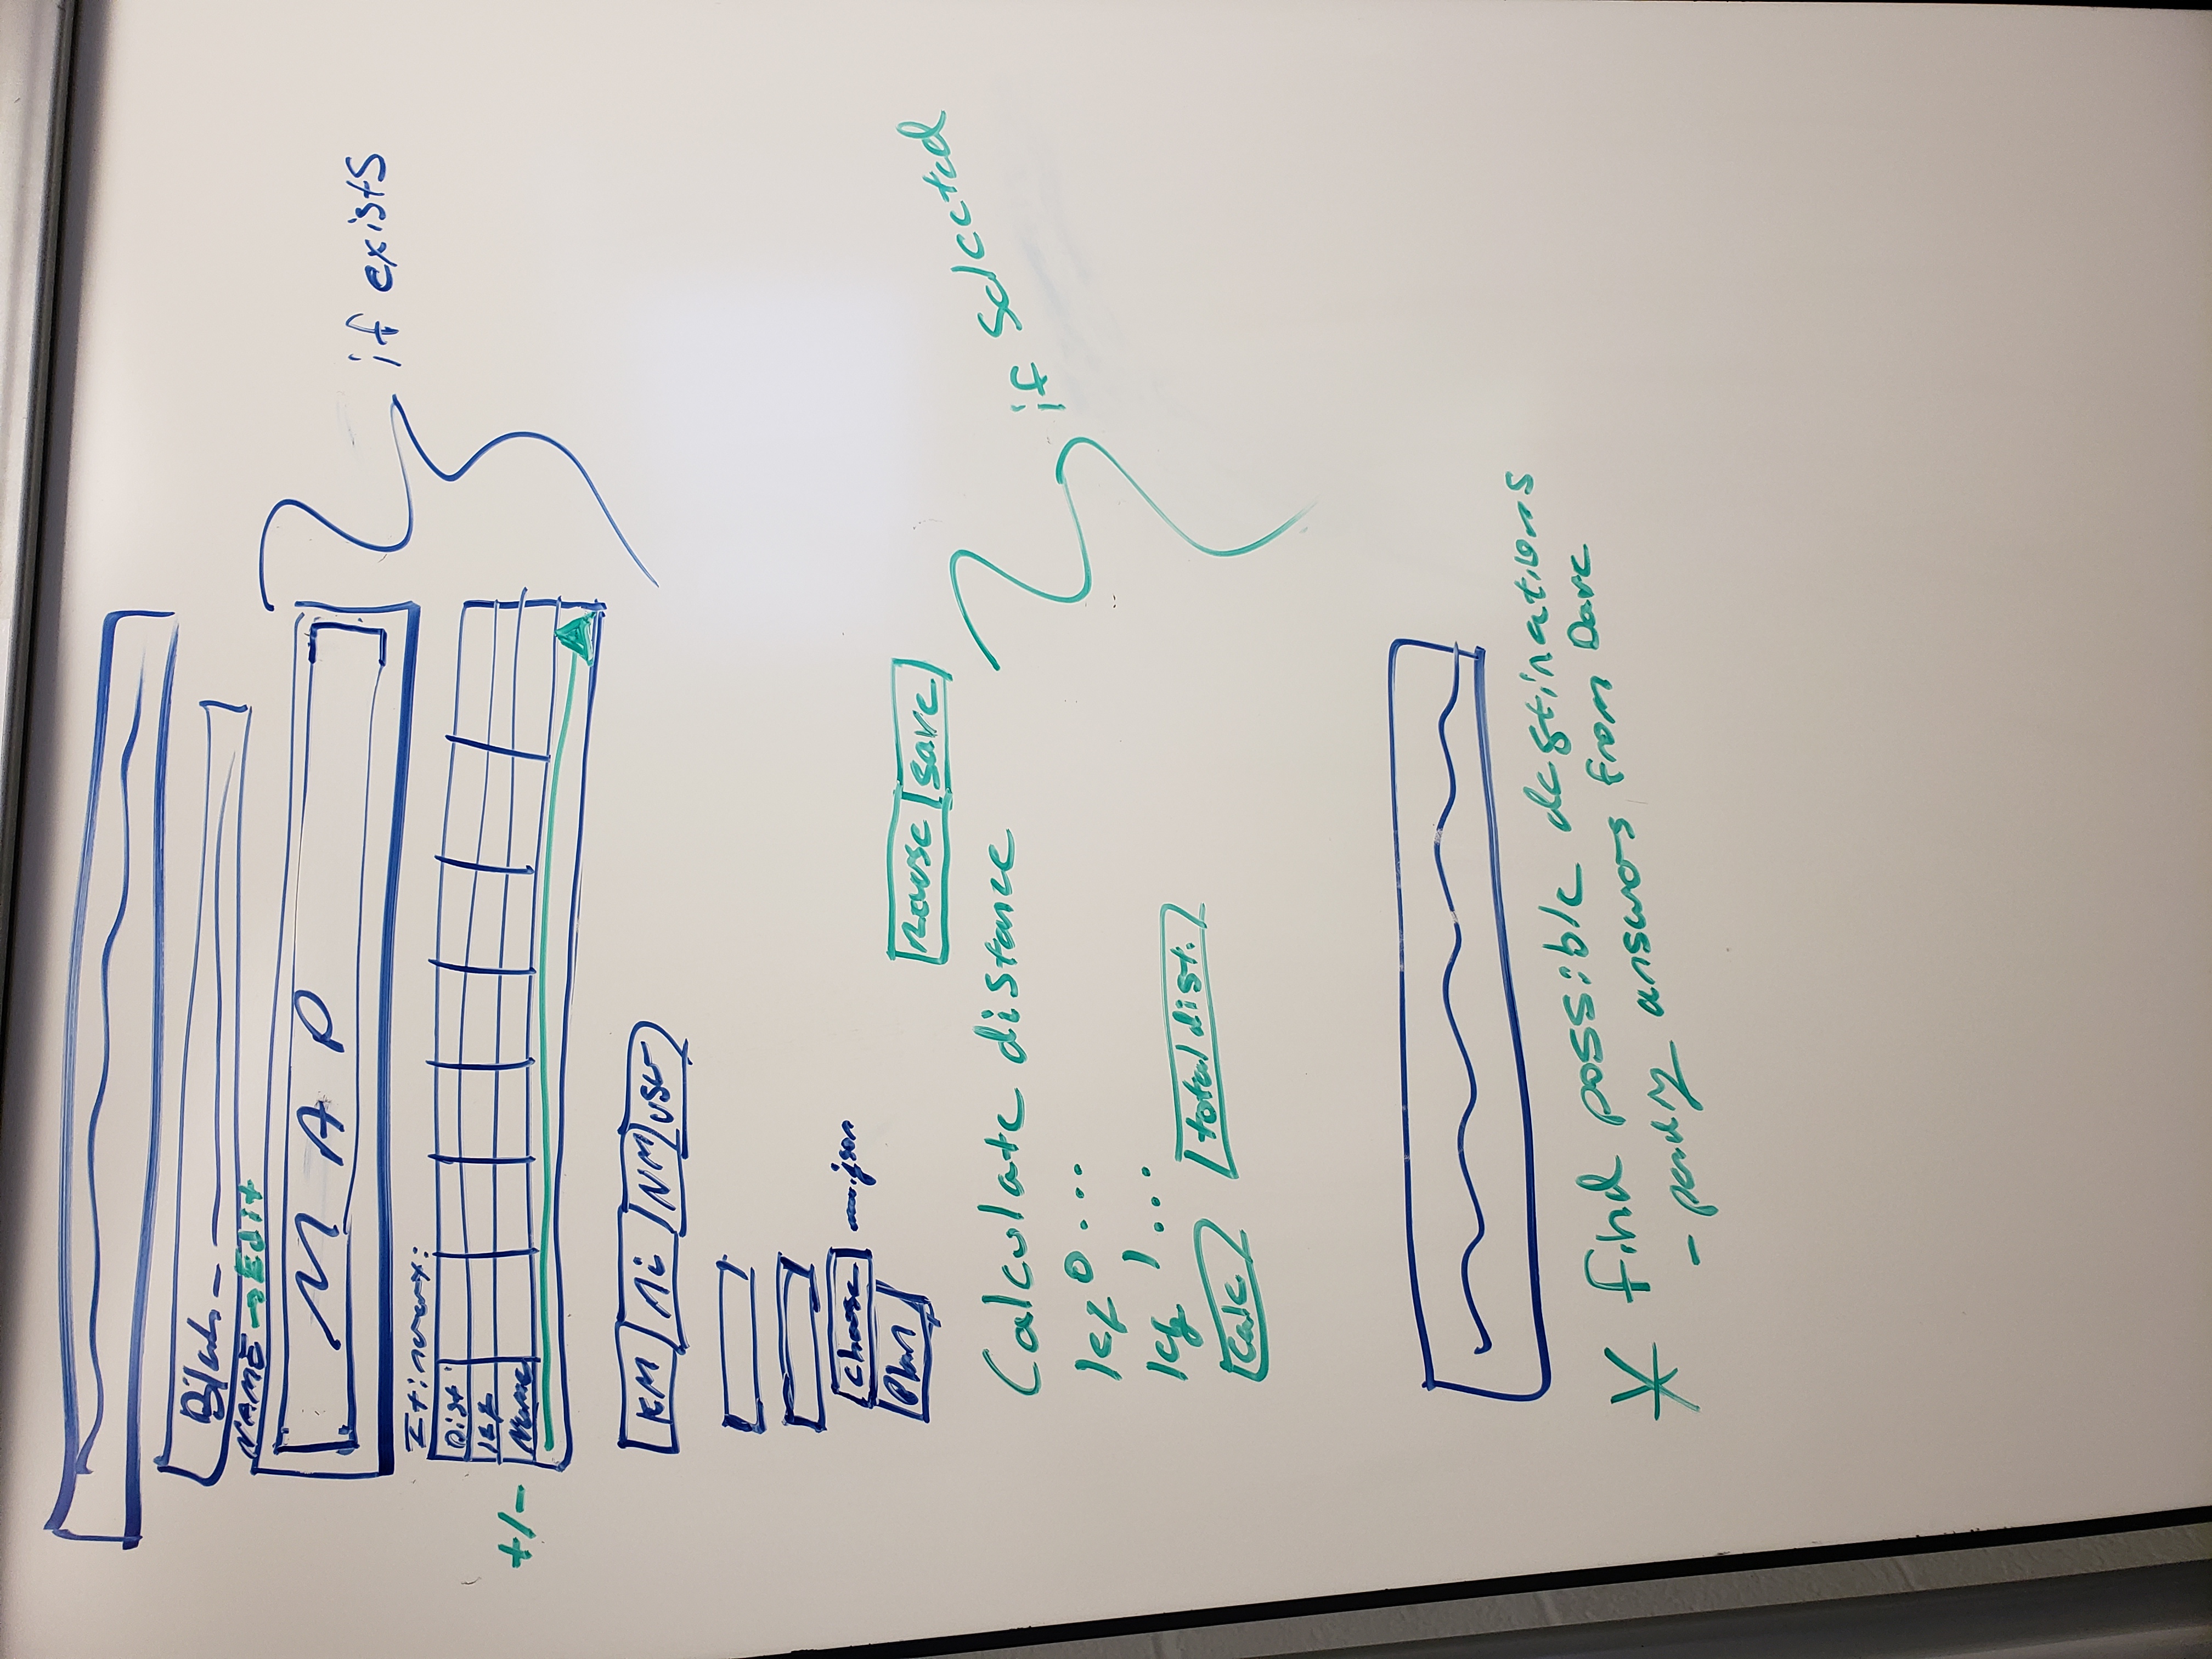 Blah
NAME → Edit
MAP
if exists
Itinerary:
Dist
leg
+/- Name
KM Mi NM user
choose .json
Plan
save
Calculate distance
if selected
leg 0 ...
leg 1 ...
Calc total dist.
* find possible destinations
- pending answers from Dave